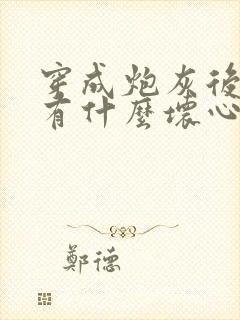 穿成炮灰後
有什麼壞心
鄭德